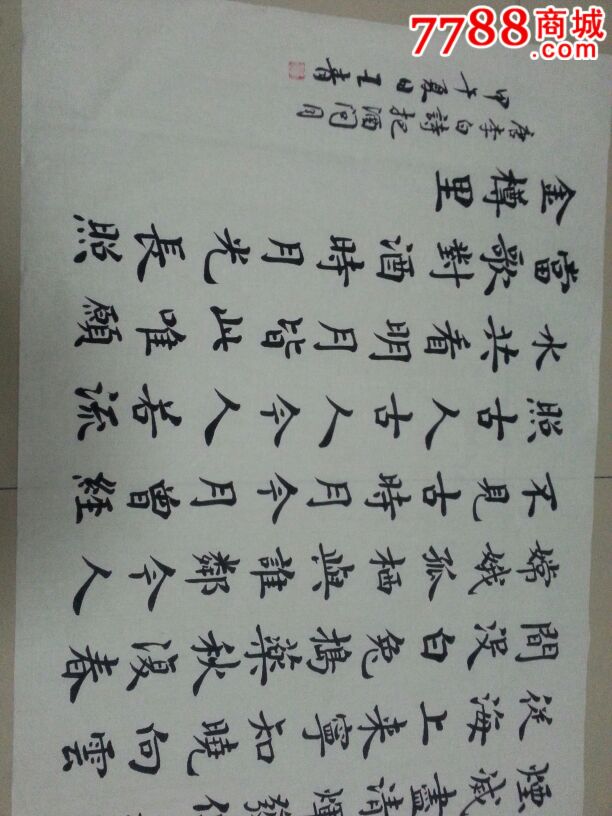 7788商城
.com
煙滅盡清輝發但
從海上來寧知曉向雲
間沒白兔搗藥秋復春
嫦娥孤栖與誰鄰今人
不見古時月今月曾經
照古人古人今人若流
水共看明月皆此唯願
當歌對酒時月光長照
金樽里
唐李白詩把酒問月
甲午夏日王青